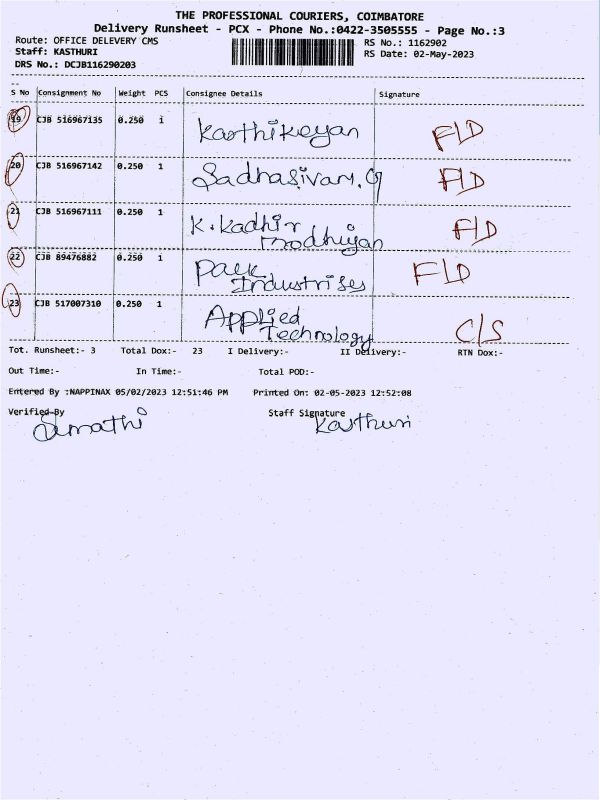 THE PROFESSIONAL COURIERS, COIMBATORE
Delivery Runsheet - PCX - Phone No.:0422-3505555 - Page No.:3
Route: OFFICE DELEVERY CMS RS No.: 1162902
Staff: KASTHURI RS Date: 02-May-2023
DRS No.: DCJB116290203
S No Consignment No Weight PCS Consignee Details Signature
19 CJB 516967135 0.250 1 Karthikeyan F/D
20 CJB 516967142 0.250 1 Sadhasivam.G F/D
21 CJB 516967111 0.250 1 K.Kadhir F/D
22 CJB 89476882 0.250 1 F/D
Industrises
23 CJB 517007310 0.250 1 Applied C/S
Technology
Tot. Runsheet:- 3 Total Dox:- 23 I Delivery:- II Delivery:- RTN Dox:-
Out Time:- In Time:- Total POD:-
Entered By :NAPPINAX 05/02/2023 12:51:46 PM Printed On: 02-05-2023 12:52:08
Verified By Staff Signature
Sumathi Kasthuri